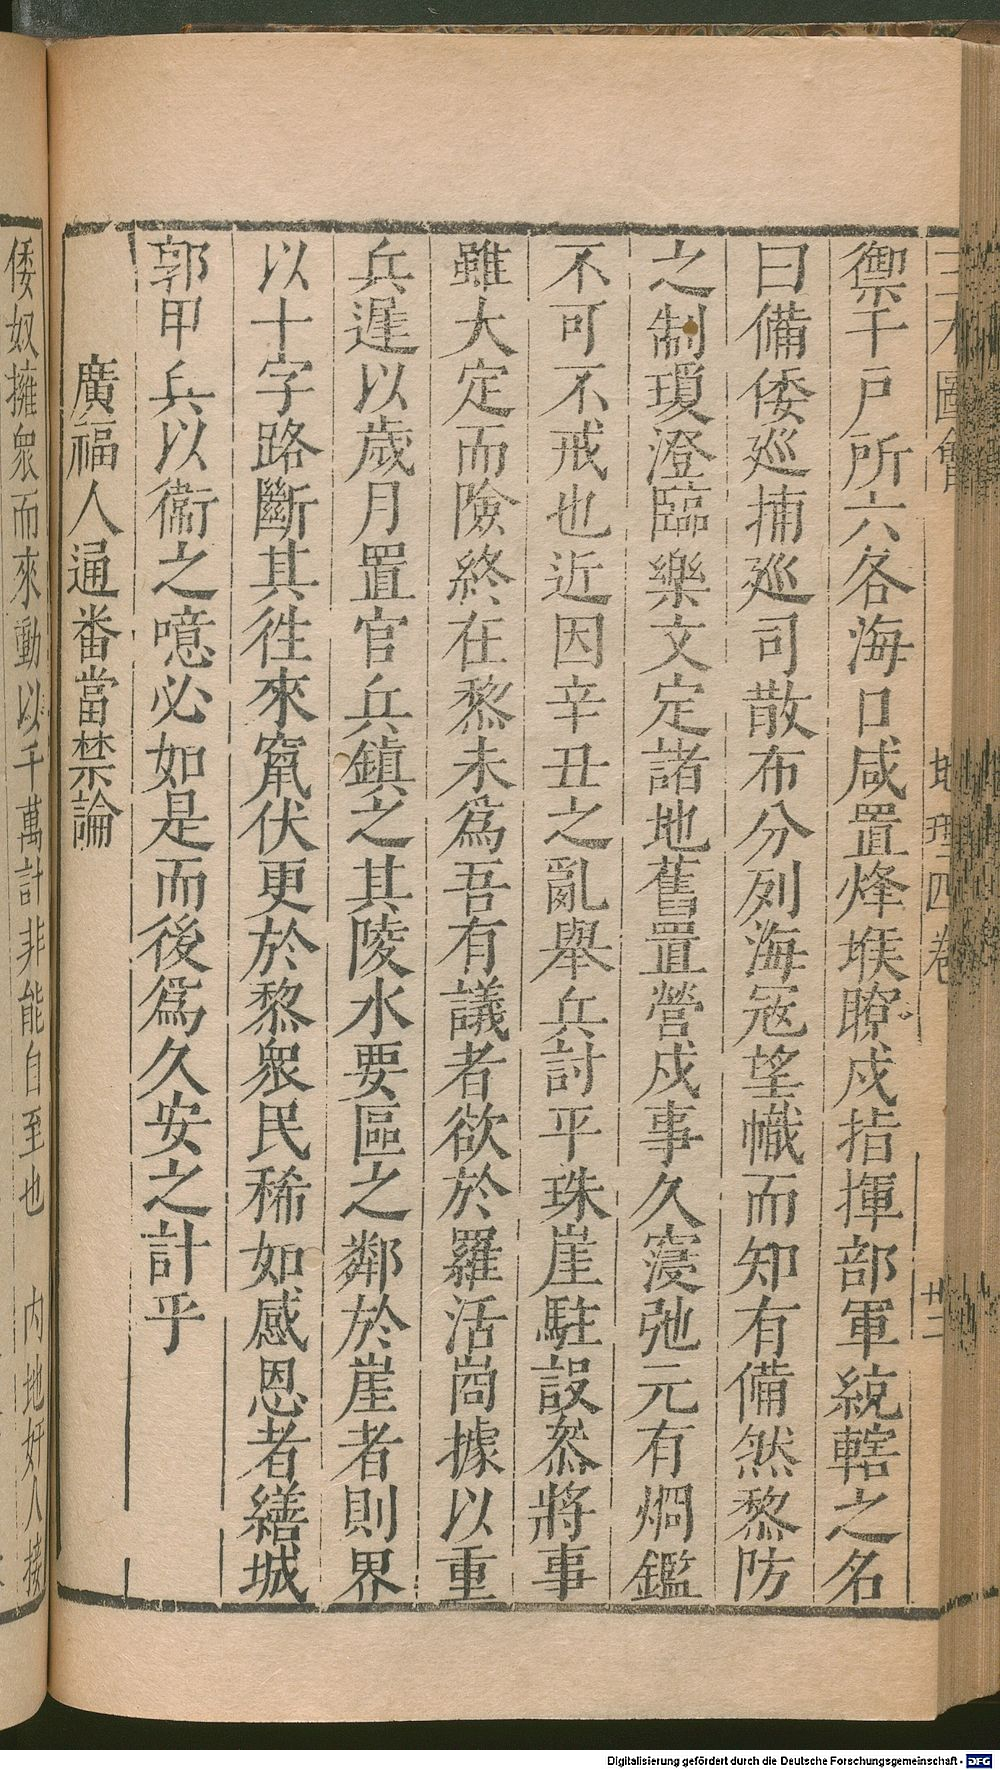 三才圖會 地理四卷 廿三
禦千戶所六各海口咸置烽堠瞭戍指揮部軍統轄之名
曰備倭巡捕巡司散布分列海冦望幟而知有備然黎防
之制瓊澄臨樂文定諸地舊置營戍事久寖弛元有烱鑑
不可不戒也近因辛丑之亂舉兵討平珠崖駐設叅將事
雖大定而險終在黎未爲吾有議者欲於羅活崗據以重
兵遲以歲月置官兵鎮之其陵水要區之鄰於崖者則界
以十字路斷其徃來竄伏更於黎衆民稀如感恩者繕城
郭甲兵以衞之噫必如是而後爲久安之計乎
廣福人通番當禁論
倭奴擁衆而來動以千萬計非能自至也 內地奸人接
Digitalisierung gefördert durch die Deutsche Forschungsgemeinschaft - DFG